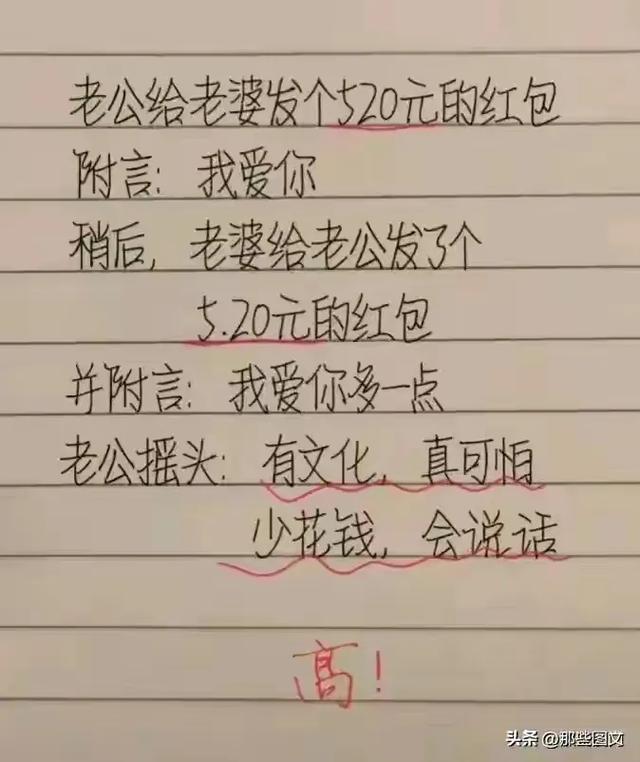 老公给老婆发个520元的红包
附言：我爱你
稍后，老婆给老公发了个
5.20元的红包
并附言：我爱你多一点
老公摇头：有文化，真可怕
少花钱，会说话
高！
头条 @那些图文